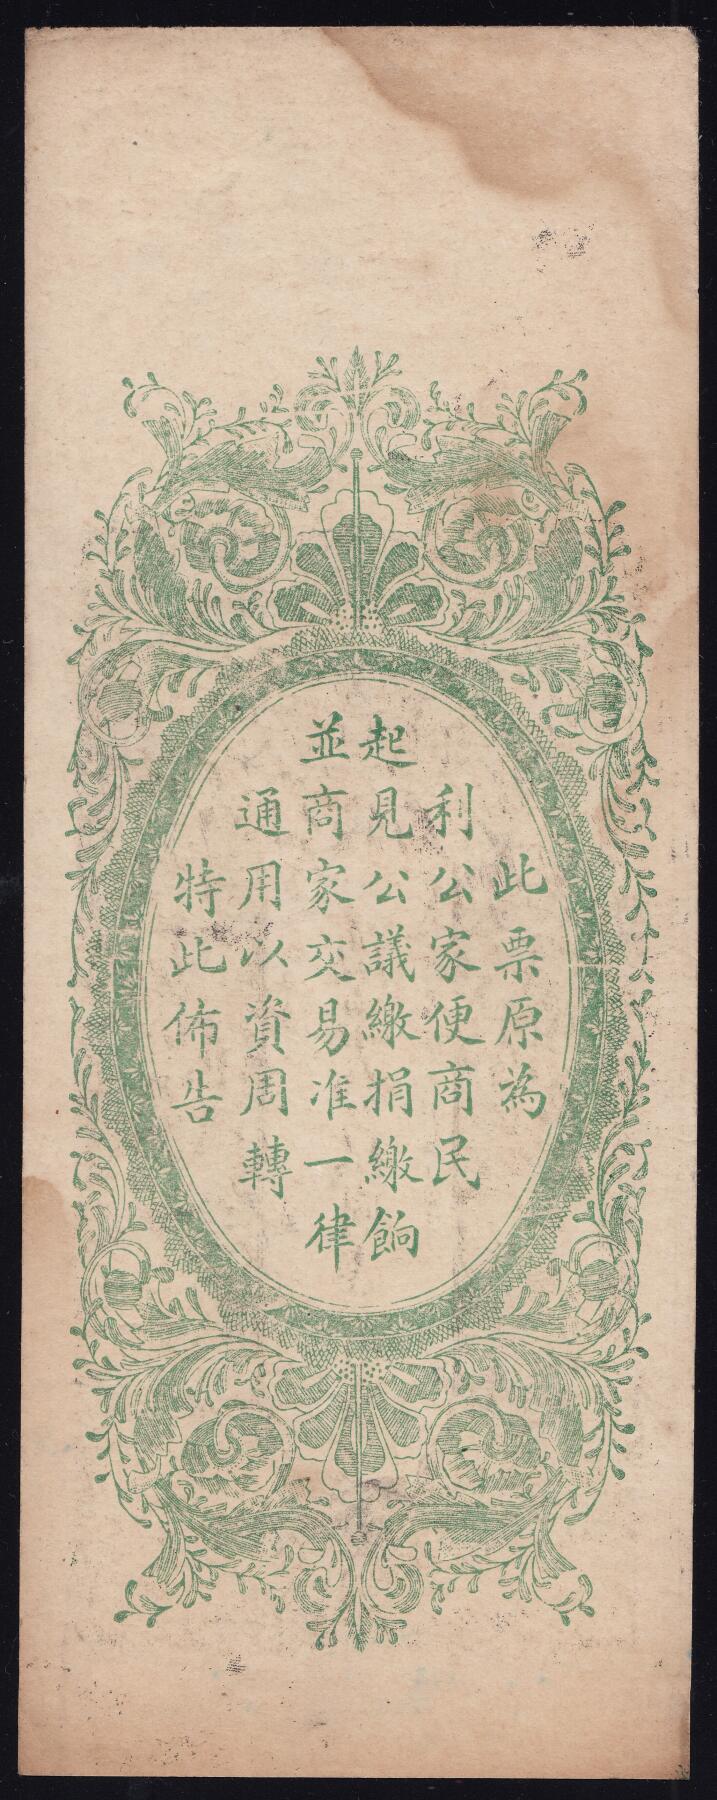 此票原為
利公家便商民
起見公議繳捐繳餉
並商家交易准一律
通用以資周轉
特此佈告